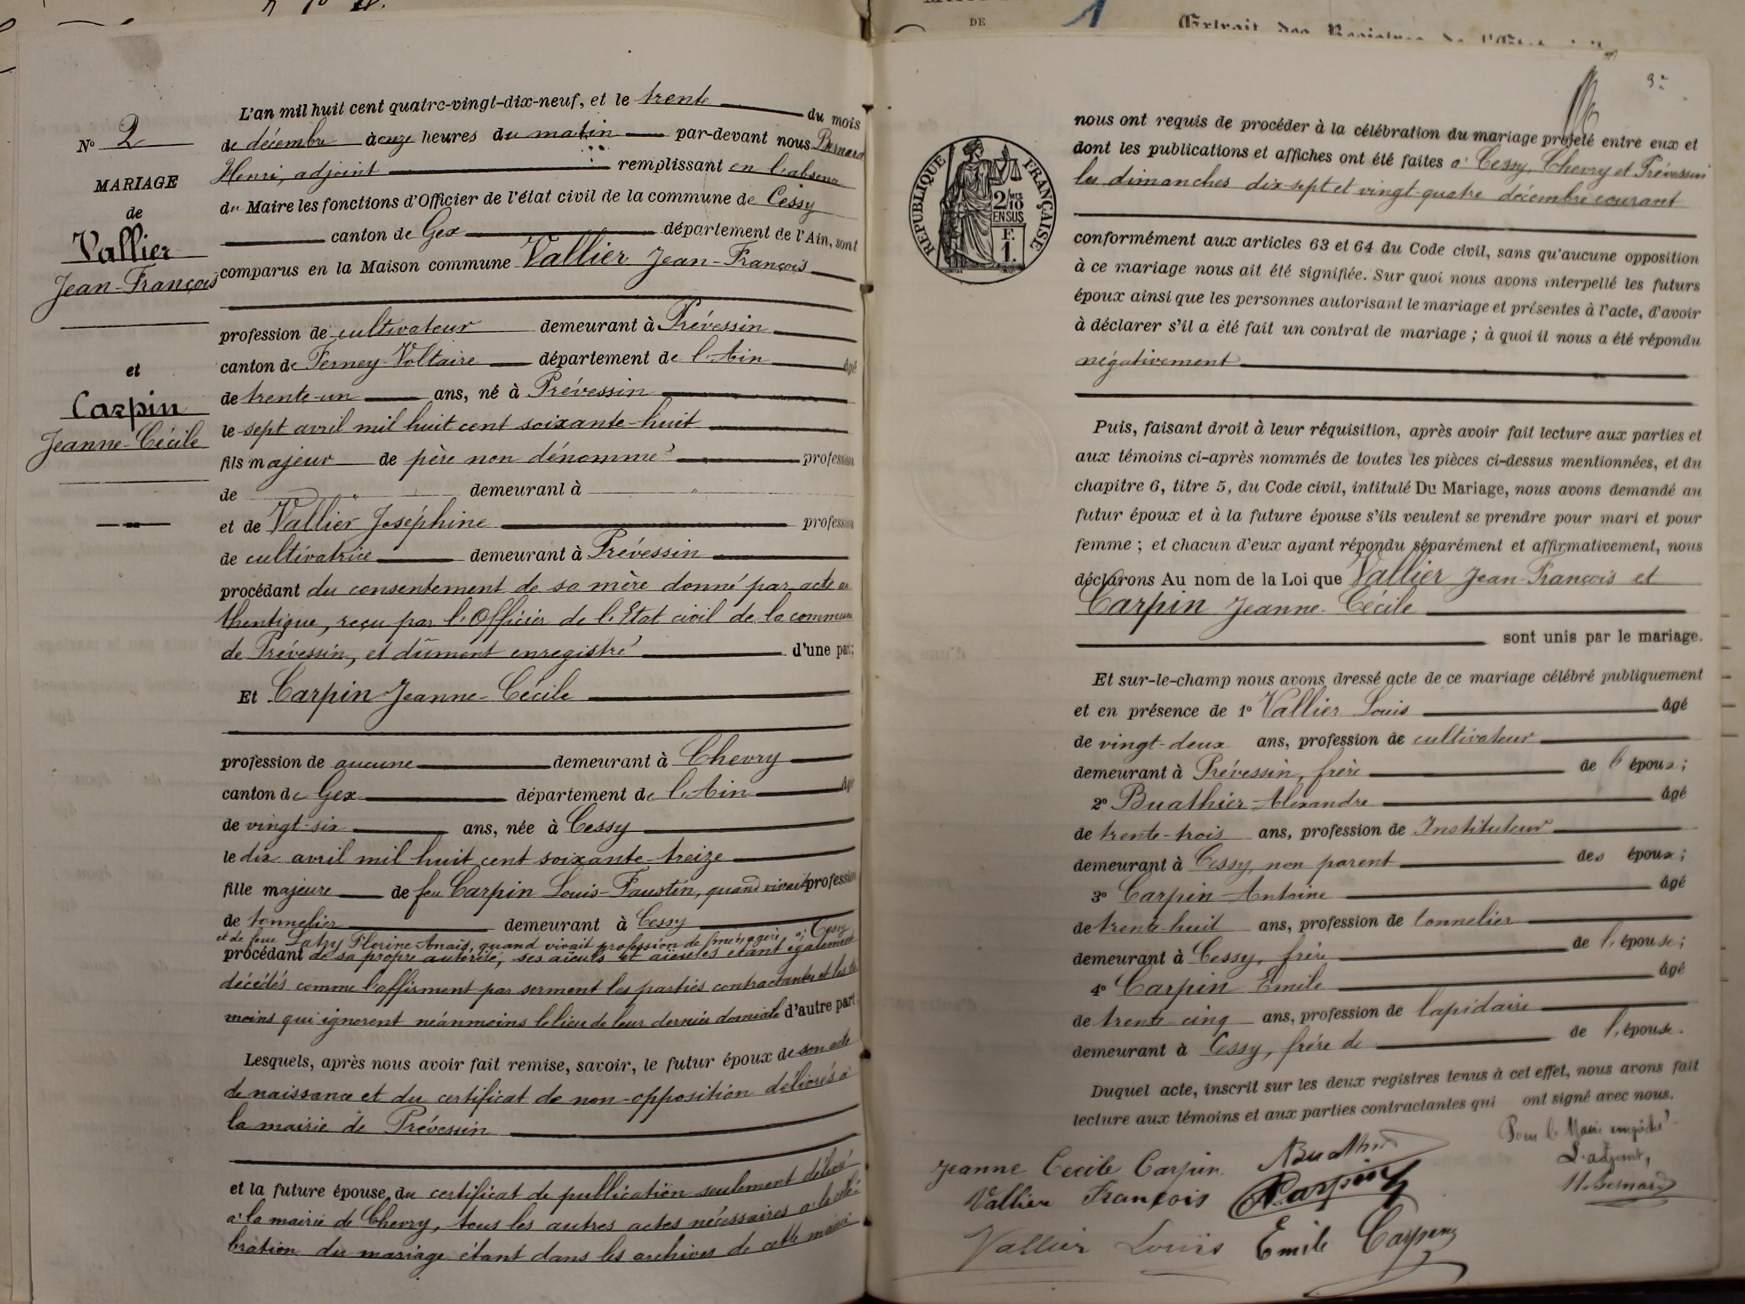 N° 2
MARIAGE
de
Vallier
Jean-François
et
Carpin
Jeanne-Cécile
L'an mil huit cent quatre-vingt-dix-neuf, et le trente du mois
de décembre à onze heures du matin par-devant nous Bernard
Henri, adjoint remplissant en l'absence
du Maire les fonctions d'Officier de l'état civil de la commune de Cessy
canton de Gex département de l'Ain, sont
comparus en la Maison commune Vallier Jean-François
profession de cultivateur demeurant à Prévessin
canton de Ferney-Voltaire département de l'Ain âgé
de trente-un ans, né à Prévessin
le sept avril mil huit cent soixante-huit
fils majeur de père non dénommé profession
de " demeurant à "
et de Vallier Joséphine profession
de cultivatrice demeurant à Prévessin
procédant du consentement de sa mère donné par acte au
thentique, reçu par l'Officier de l'Etat civil de la commune
de Prévessin, et dûment enregistré d'une part;
Et Carpin Jeanne-Cécile
profession de aucune demeurant à Chevry
canton de Gex département de l'Ain âgé
de vingt-six ans, née à Cessy
le dix avril mil huit cent soixante-treize
fille majeure de feu Carpin Louis-Faustin, quand vivait profession
de tonnelier demeurant à Cessy
et de feue Latzy Florine-Anais, quand vivait profession de ménagère, à Cessy
procédant de sa propre autorité, ses aïeuls et aïeules étant également
décédés comme l'affirment par serment les parties contractantes et les té
moins qui ignorent néanmoins le lieu de leur dernier domicile d'autre part
Lesquels, après nous avoir fait remise, savoir, le futur époux de son acte
de naissance et du certificat de non-opposition délivrés à
la mairie de Prévessin
et la future épouse du certificat de publication seulement délivré
à la mairie de Chevry, tous les autres actes nécessaires à la célé
bration du mariage étant dans les archives de cette mairie
DE
1
Extrait des Registres de l'Etat civil
3
RÉPUBLIQUE FRANÇAISE
2/10
EN SUS
F.
1.
nous ont requis de procéder à la célébration du mariage projeté entre eux et
dont les publications et affiches ont été faites à Cessy, Chevry et Prévessin
les dimanches dix-sept et vingt-quatre décembre courant
conformément aux articles 63 et 64 du Code civil, sans qu'aucune opposition
à ce mariage nous ait été signifiée. Sur quoi nous avons interpellé les futurs
époux ainsi que les personnes autorisant le mariage et présentes à l'acte, d'avoir
à déclarer s'il a été fait un contrat de mariage ; à quoi il nous a été répondu
négativement
Puis, faisant droit à leur réquisition, après avoir fait lecture aux parties et
aux témoins ci-après nommés de toutes les pièces ci-dessus mentionnées, et du
chapitre 6, titre 5, du Code civil, intitulé Du Mariage, nous avons demandé au
futur époux et à la future épouse s'ils veulent se prendre pour mari et pour
femme ; et chacun d'eux ayant répondu séparément et affirmativement, nous
déclarons Au nom de la Loi que Vallier Jean-François et
Carpin Jeanne-Cécile
sont unis par le mariage.
Et sur-le-champ nous avons dressé acte de ce mariage célébré publiquement
et en présence de 1° Vallier Louis âgé
de vingt-deux ans, profession de cultivateur
demeurant à Prévessin, frère de l'époux ;
2° Buathier Alexandre âgé
de trente-trois ans, profession de Instituteur
demeurant à Cessy, non parent des époux ;
3° Carpin Antoine âgé
de trente-huit ans, profession de tonnelier
demeurant à Cessy, frère de l'épouse ;
4° Carpin Emile âgé
de trente cinq ans, profession de lapidaire
demeurant à Cessy, frère de de l'épouse.
Duquel acte, inscrit sur les deux registres tenus à cet effet, nous avons fait
lecture aux témoins et aux parties contractantes qui ont signé avec nous.
Jeanne Cecile Carpin ABuathier Pour le Maire empêché
Vallier François ACarpin L'adjoint,
Vallier Louis Emile Carpin H. Bernard